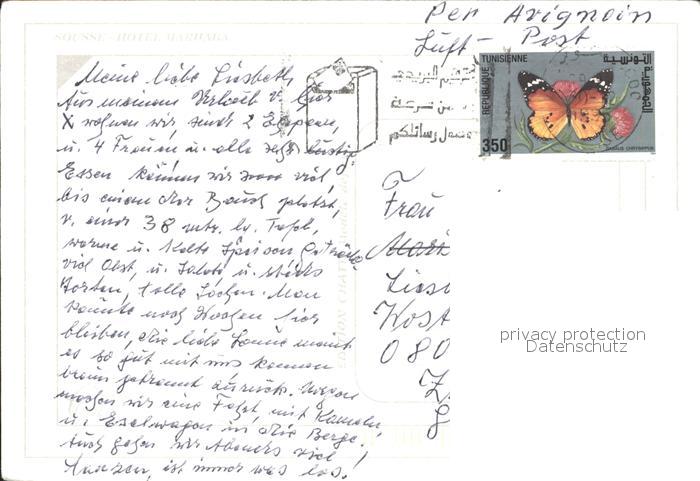 Per Avignoin
Luft-Post
SOUSSE - HOTEL MARHABA
Meine liebe Liesbeth,
Aus meinem Urlaub v. hier
X wohnen wir, sind 2 Ehepaare,
u. 4 Frauen u. alle sehr lustig.
Essen können wir so viel,
bis einem der Bauch platzt,
v. einer 38 mtr. lg. Tafel,
warme u. kalte Speisen, Getränke
viel Obst, u. Salate u.
Torten, tolle Sachen. Man
könnte noch Wochen hier
bleiben, die liebe Sonne meint
es so gut mit uns, kommen
braun gebrannt zurück. Morgen
machen wir eine Fahrt mit Kamelen
u. Eselwagen in die Berge.
Auch gehen wir Abends viel
tanzen, ist immer was los!
REPUBLIQUE TUNISIENNE
الجمهورية التونسية
350
DANAUS CHRYSIPPUS
Frau
Liesb
Post
080
privacy protection
Datenschutz